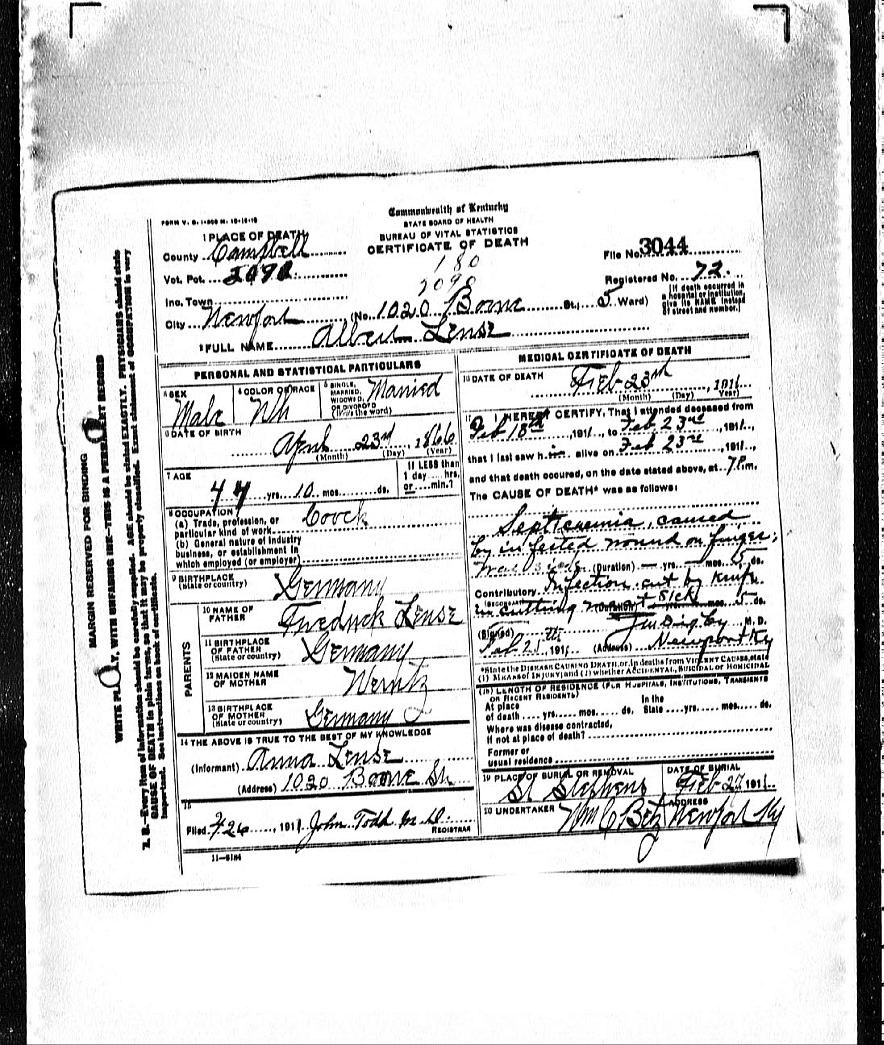 FORM V. S. 1-
Commonwealth of Kentucky
STATE BOARD OF HEALTH
BUREAU OF VITAL STATISTICS
CERTIFICATE OF DEATH
1 PLACE OF DEATH
County Campbell
Vot. Pct. 2090
Inc. Town
City Newport
180
2090
File No. 3044
Registered No. 72.
(No. 1020 Boone St.; 5 Ward)
[If death occurred in a hospital or institution, give its NAME instead of street and number.]
2 FULL NAME Albert Lense
PERSONAL AND STATISTICAL PARTICULARS
3 SEX Male
4 COLOR OR RACE Wh
5 SINGLE, MARRIED, WIDOWED, OR DIVORCED (Write the word) Married
6 DATE OF BIRTH April 23rd 1866
(Month) (Day) (Year)
7 AGE 44 yrs. 10 mos. ds.
If LESS than 1 day hrs. or min.?
8 OCCUPATION
(a) Trade, profession, or particular kind of work Coock
(b) General nature of industry business, or establishment in which employed (or employer)
9 BIRTHPLACE (State or country) Germany
PARENTS
10 NAME OF FATHER Fredrick Lense
11 BIRTHPLACE OF FATHER (State or country) Germany
12 MAIDEN NAME OF MOTHER Werntz
13 BIRTHPLACE OF MOTHER (State or country) Germany
14 THE ABOVE IS TRUE TO THE BEST OF MY KNOWLEDGE
(Informant) Anna Lense
(Address) 1020 Boone St.
15
Filed 2 26, 1911 John Todd M.D.
REGISTRAR
11-3184
MEDICAL CERTIFICATE OF DEATH
16 DATE OF DEATH Feb 23rd, 1911
(Month) (Day) (Year)
17 I HEREBY CERTIFY, That I attended deceased from
Feb 18th, 1911, to Feb 23rd, 1911,
that I last saw him alive on Feb 23rd, 1911,
and that death occured, on the date stated above, at 7 P.m.
The CAUSE OF DEATH* was as follows:
Septicaemia, caused
by infected wound on finger;
(Duration) yrs. mos. 5 ds.
Contributory Infection cut by knife
in cutting mos. 5 ds.
(Signed) M. D.
Feb 25th, 1911 (Address) Newport Ky
*State the DISEASE CAUSING DEATH, or, in deaths from VIOLENT CAUSES, state
(1) MEANS OF INJURY; and (2) whether ACCIDENTAL, SUICIDAL OR HOMICIDAL
(18) LENGTH OF RESIDENCE (FOR HOSPITALS, INSTITUTIONS, TRANSIENTS OR RECENT RESIDENTS)
At place of death yrs. mos. ds. In the State yrs. mos. ds.
Where was disease contracted, if not at place of death?
Former or usual residence
19 PLACE OF BURIAL OR REMOVAL St Stephens
DATE OF BURIAL Feb 27 1911
20 UNDERTAKER Wm C Betz
ADDRESS Newport Ky
MARGIN RESERVED FOR BINDING
WRITE PLAINLY, WITH UNFADING INK—THIS IS A PERMANENT RECORD
N. B.—Every item of information should be carefully supplied. AGE should be stated EXACTLY. PHYSICIANS should state
CAUSE OF DEATH in plain terms, so that it may be properly classified. Exact statement of OCCUPATION is very
important. See instructions on back of certificate.